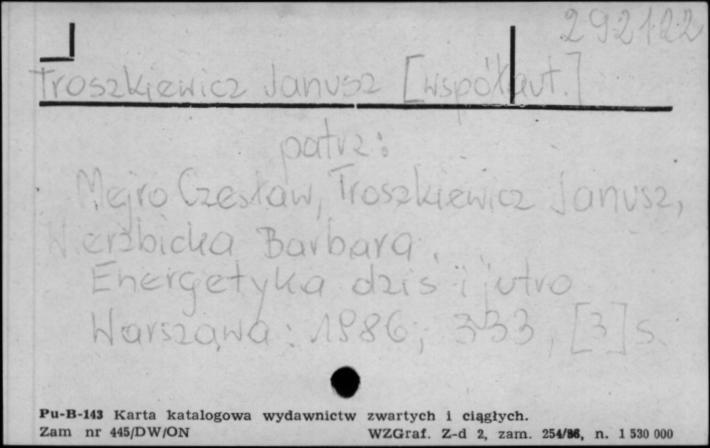 292122
Troszkiewicz Janusz [współaut.]
patrz:
Mejro Czesław, Troszkiewicz Janusz,
Wierzbicka Barbara.
Energetyka dziś i jutro
Warszawa: 1986, 333, [3] s.
Pu-B-143 Karta katalogowa wydawnictw zwartych i ciągłych.
Zam nr 445/DW/ON WZGraf. Z-d 2, zam. 254/86, n. 1 530 000